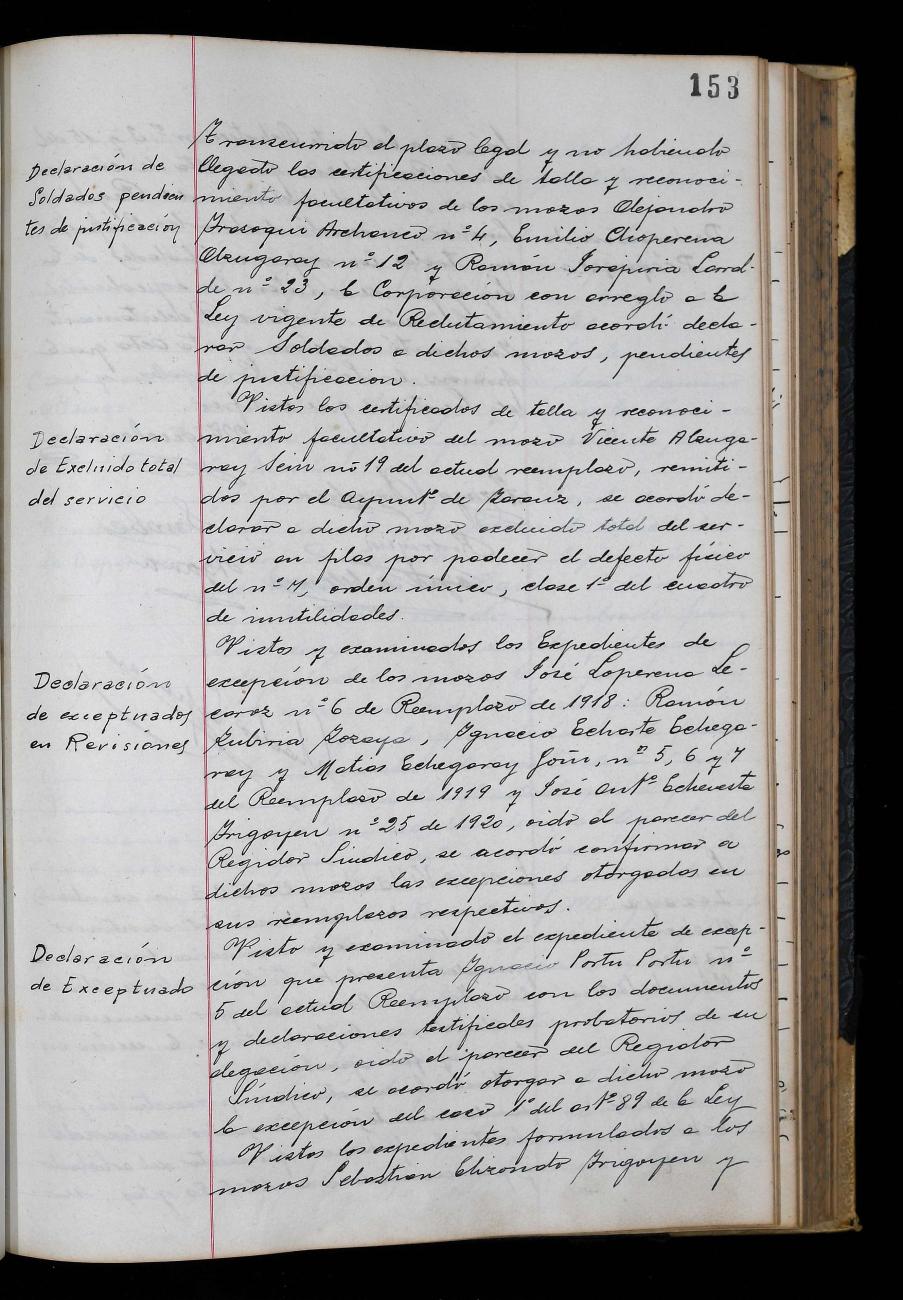 153
Declaración de
Soldados pendien
tes de justificación
Transcurrido el plazo legal y no habiendo
llegado las certificaciones de talla y reconoci-
miento facultativos de los mozos Alejandro
Irasoqui Archanco nº 4, Emilio Oioperena
Alzugaray nº 12 y Ramón Larral-
de nº 23, la Corporación con arreglo a la
Ley vigente de Reclutamiento acordó decla-
rar Soldados a dichos mozos, pendientes
de justificacion.
Declaración
de Excluido total
del servicio
Vistos los certificados de talla y reconoci-
miento facultativo del mozo Vicente Alzuga-
ray Sein nº 19 del actual reemplazo, remiti-
dos por el Ayuntº de Zarauz, se acordó de-
clarar a dicho mozo excluido total del ser-
vicio en filas por padecer el defecto físico
del nº 7, orden único, clase 1ª del cuadro
de inutilidades.
Declaración
de exceptuados
en Revisiones
Vistos y examinados los Expedientes de
excepción de los mozos José Loperena Le-
caroz nº 6 de Reemplazo de 1918: Ramón
Zubiria Zozaya, Ignacio Echarte Echega-
ray y Matias Echegaray Goñi, nº 5, 6 y 7
del Reemplazo de 1919 y José Antº Echeveste
Irigoyen nº 25 de 1920, oido el parecer del
Regidor Síndico, se acordó confirmar a
dichos mozos las excepciones otorgadas en
sus reemplazos respectivos.
Declaración
de Exceptuado
Visto y examinado el expediente de excep-
ción que presenta Ignacio Portu Portu nº
5 del actual Reemplazo con los documentos
y declaraciones testificales probatorios de su
alegación, oido el parecer del Regidor
Síndico, se acordó otorgar a dicho mozo
la excepción del caso 1º del artº 89 de la Ley
Vistos los expedientes formulados a los
mozos Sebastian Elizondo Irigoyen y